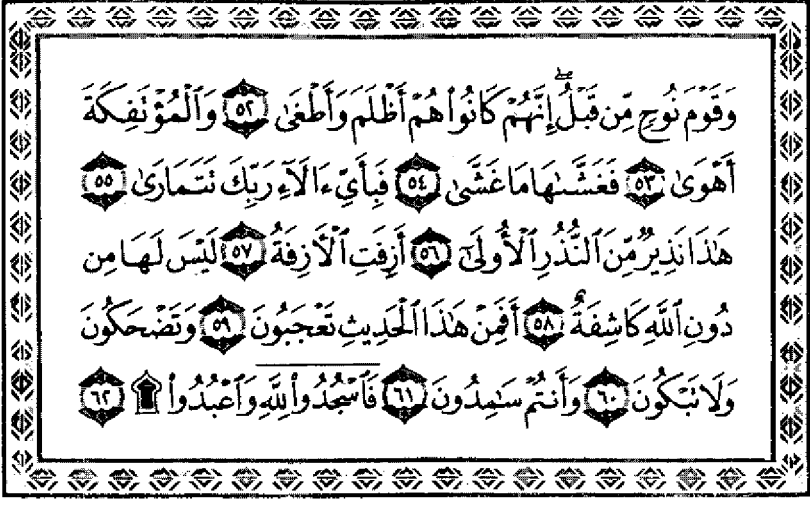 وَقَوْمَ نُوحٍ مِّن قَبْلُ ۖ إِنَّهُمْ كَانُوا۟ هُمْ أَظْلَمَ وَأَطْغَىٰ ٥٢ وَٱلْمُؤْتَفِكَةَ
أَهْوَىٰ ٥٣ فَغَشَّىٰهَا مَا غَشَّىٰ ٥٤ فَبِأَىِّ ءَالَآءِ رَبِّكَ تَتَمَارَىٰ ٥٥
هَٰذَا نَذِيرٌ مِّنَ ٱلنُّذُرِ ٱلْأُولَىٰٓ ٥٦ أَزِفَتِ ٱلْـَٔازِفَةُ ٥٧ لَيْسَ لَهَا مِن
دُونِ ٱللَّهِ كَاشِفَةٌ ٥٨ أَفَمِنْ هَٰذَا ٱلْحَدِيثِ تَعْجَبُونَ ٥٩ وَتَضْحَكُونَ
وَلَا تَبْكُونَ ٦٠ وَأَنتُمْ سَٰمِدُونَ ٦١ فَٱسْجُدُوا۟ لِلَّهِ وَٱعْبُدُوا۟ ۩ ٦٢